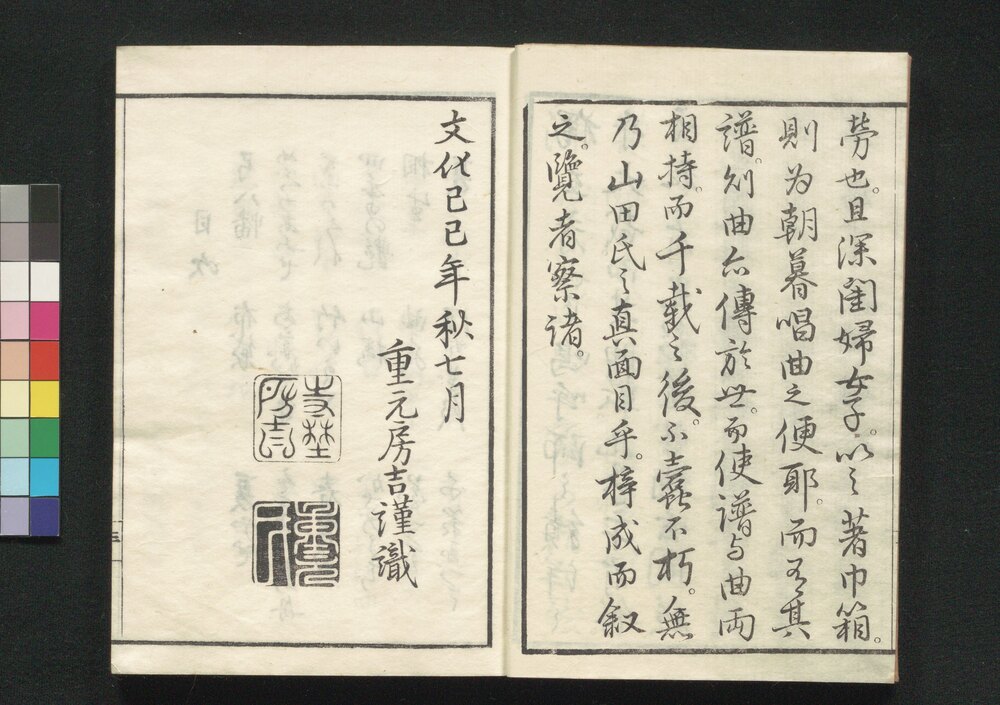 勞也。且深閨婦女子。以之著巾箱。
則為朝暮唱曲之便耶。而有其
譜。則曲亦傳於世。而使譜与曲両
相持。而千載之後。不蠹不朽。無
乃山田氏之真面目乎。梓成而叙
之。覽者察諸。
文化己巳年秋七月
重元房吉謹識